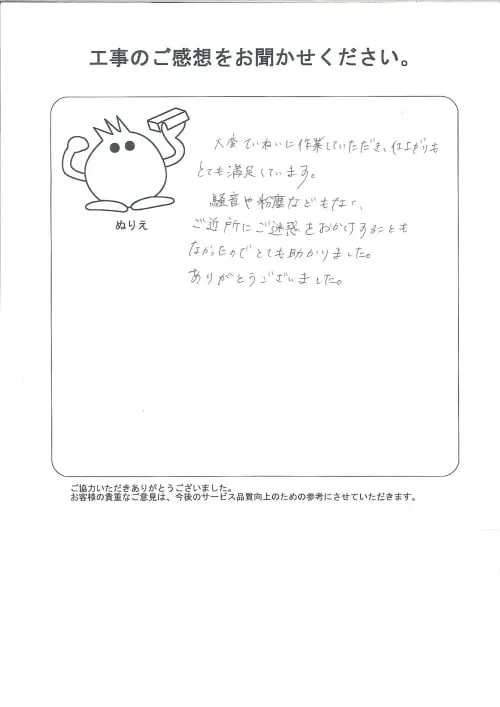 工事のご感想をお聞かせください。
ぬりえ
大変ていねいに作業していただき、仕上がりも
とても満足しています。
騒音や粉塵などもなく、
ご近所にご迷惑をおかけすることも
なかったのでとても助かりました。
ありがとうございました。
ご協力いただきありがとうございました。
お客様の貴重なご意見は、今後のサービス品質向上のための参考にさせていただきます。